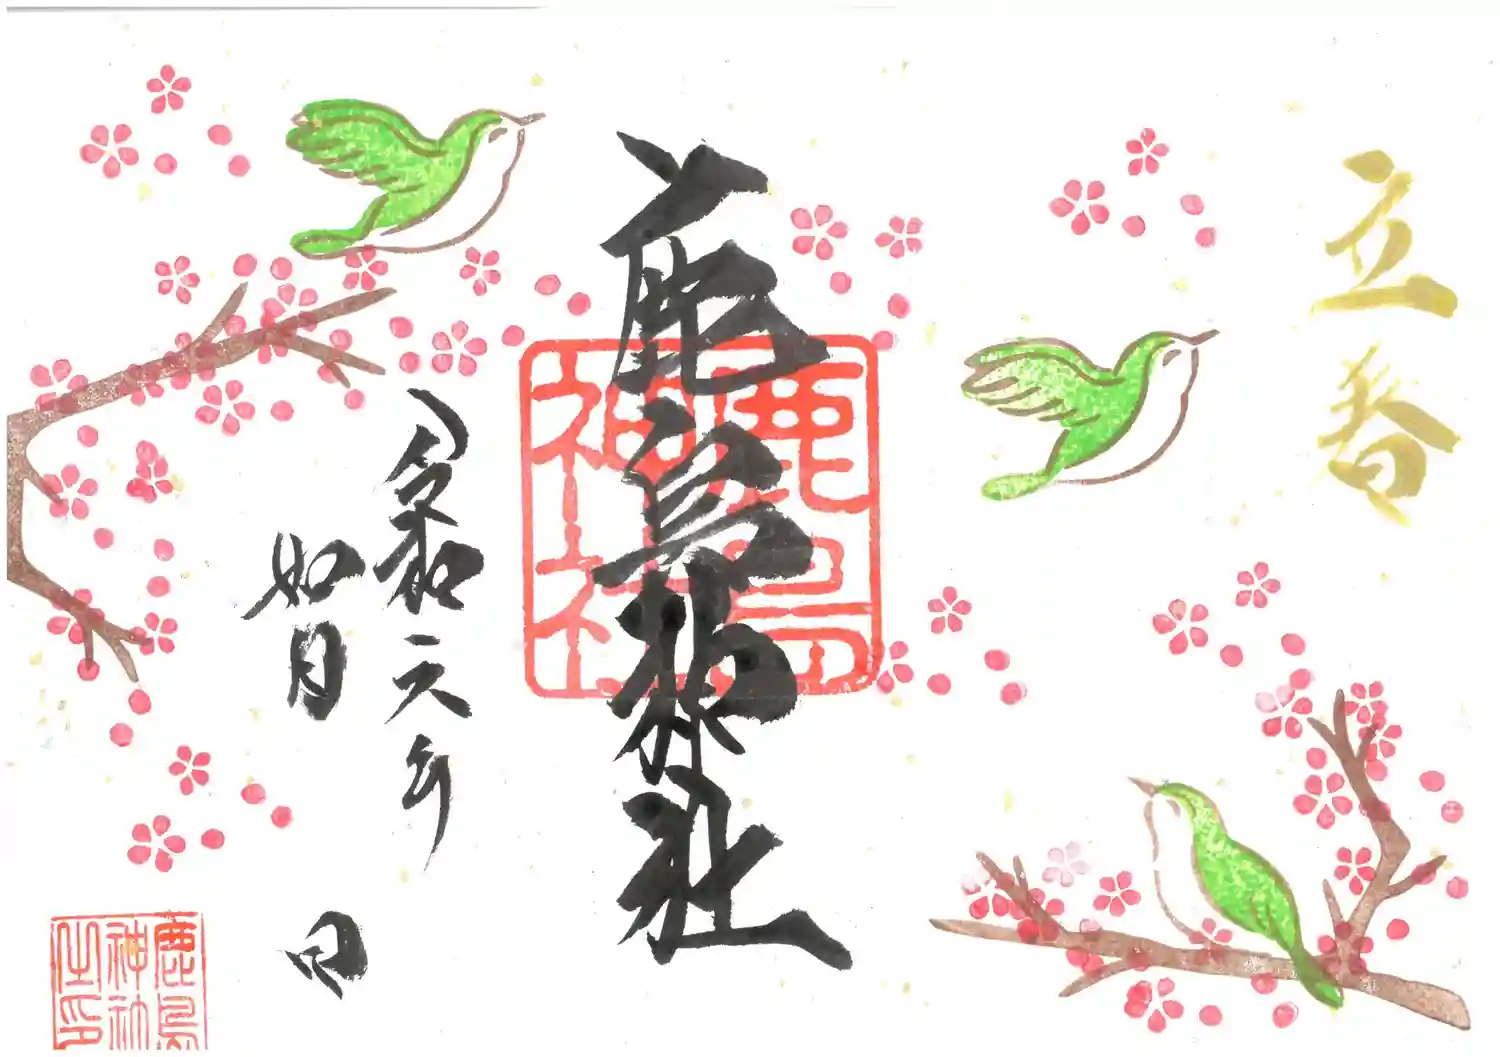 立春
鹿島神社
鹿島神社
令和六年
如月
日
鹿島神社之印